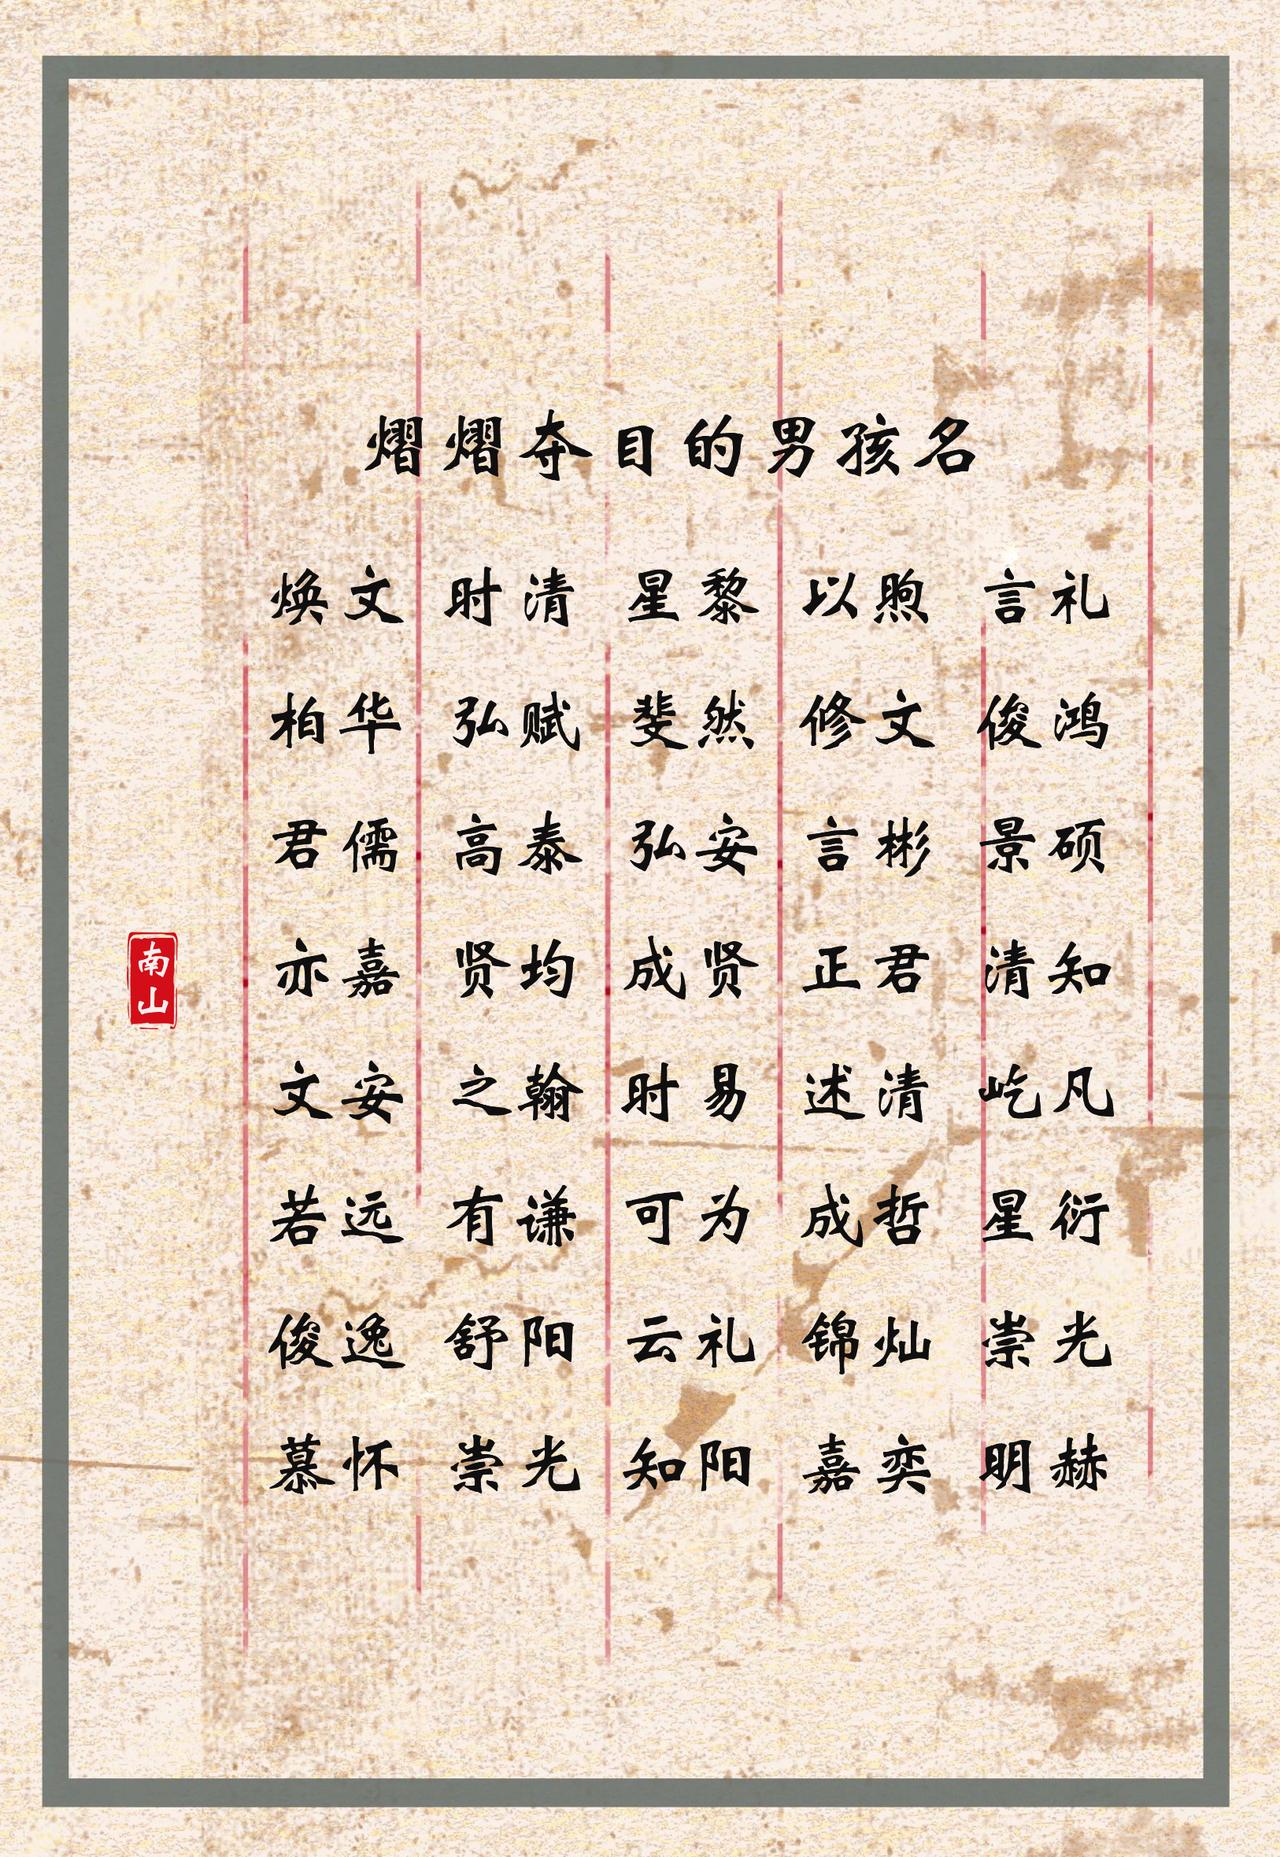 熠熠夺目的男孩名
焕文 时清 星黎 以煦 言礼
柏华 弘赋 斐然 修文 俊鸿
君儒 高泰 弘安 言彬 景硕
亦嘉 贤均 成贤 正君 清知
文安 之翰 时易 述清 屹凡
若远 有谦 可为 成哲 星衍
俊逸 舒阳 云礼 锦灿 崇光
慕怀 崇光 知阳 嘉奕 明赫
南山